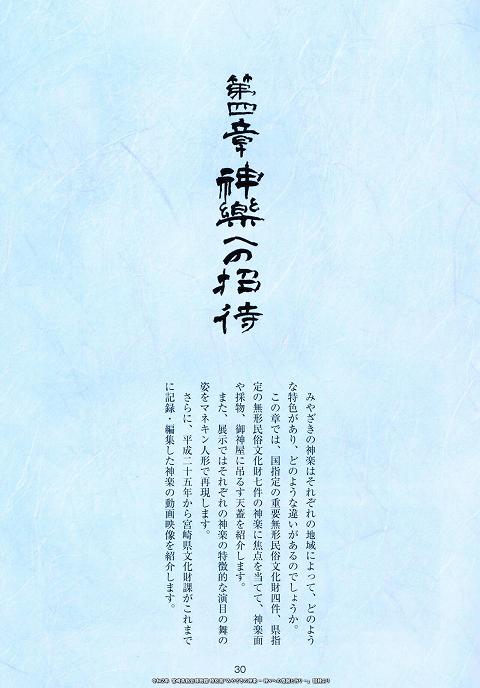 第四章 神樂への招待
みやざきの神楽はそれぞれの地域によって、どのよう
な特色があり、どのような違いがあるのでしょうか。
この章では、国指定の重要無形民俗文化財四件、県指
定の無形民俗文化財七件の神楽に焦点を当てて、神楽面
や採物、御神屋に吊るす天蓋を紹介します。
また、展示ではそれぞれの神楽の特徴的な演目の舞の
姿をマネキン人形で再現します。
さらに、平成二十五年から宮崎県文化財課がこれまで
に記録・編集した神楽の動画映像を紹介します。
30